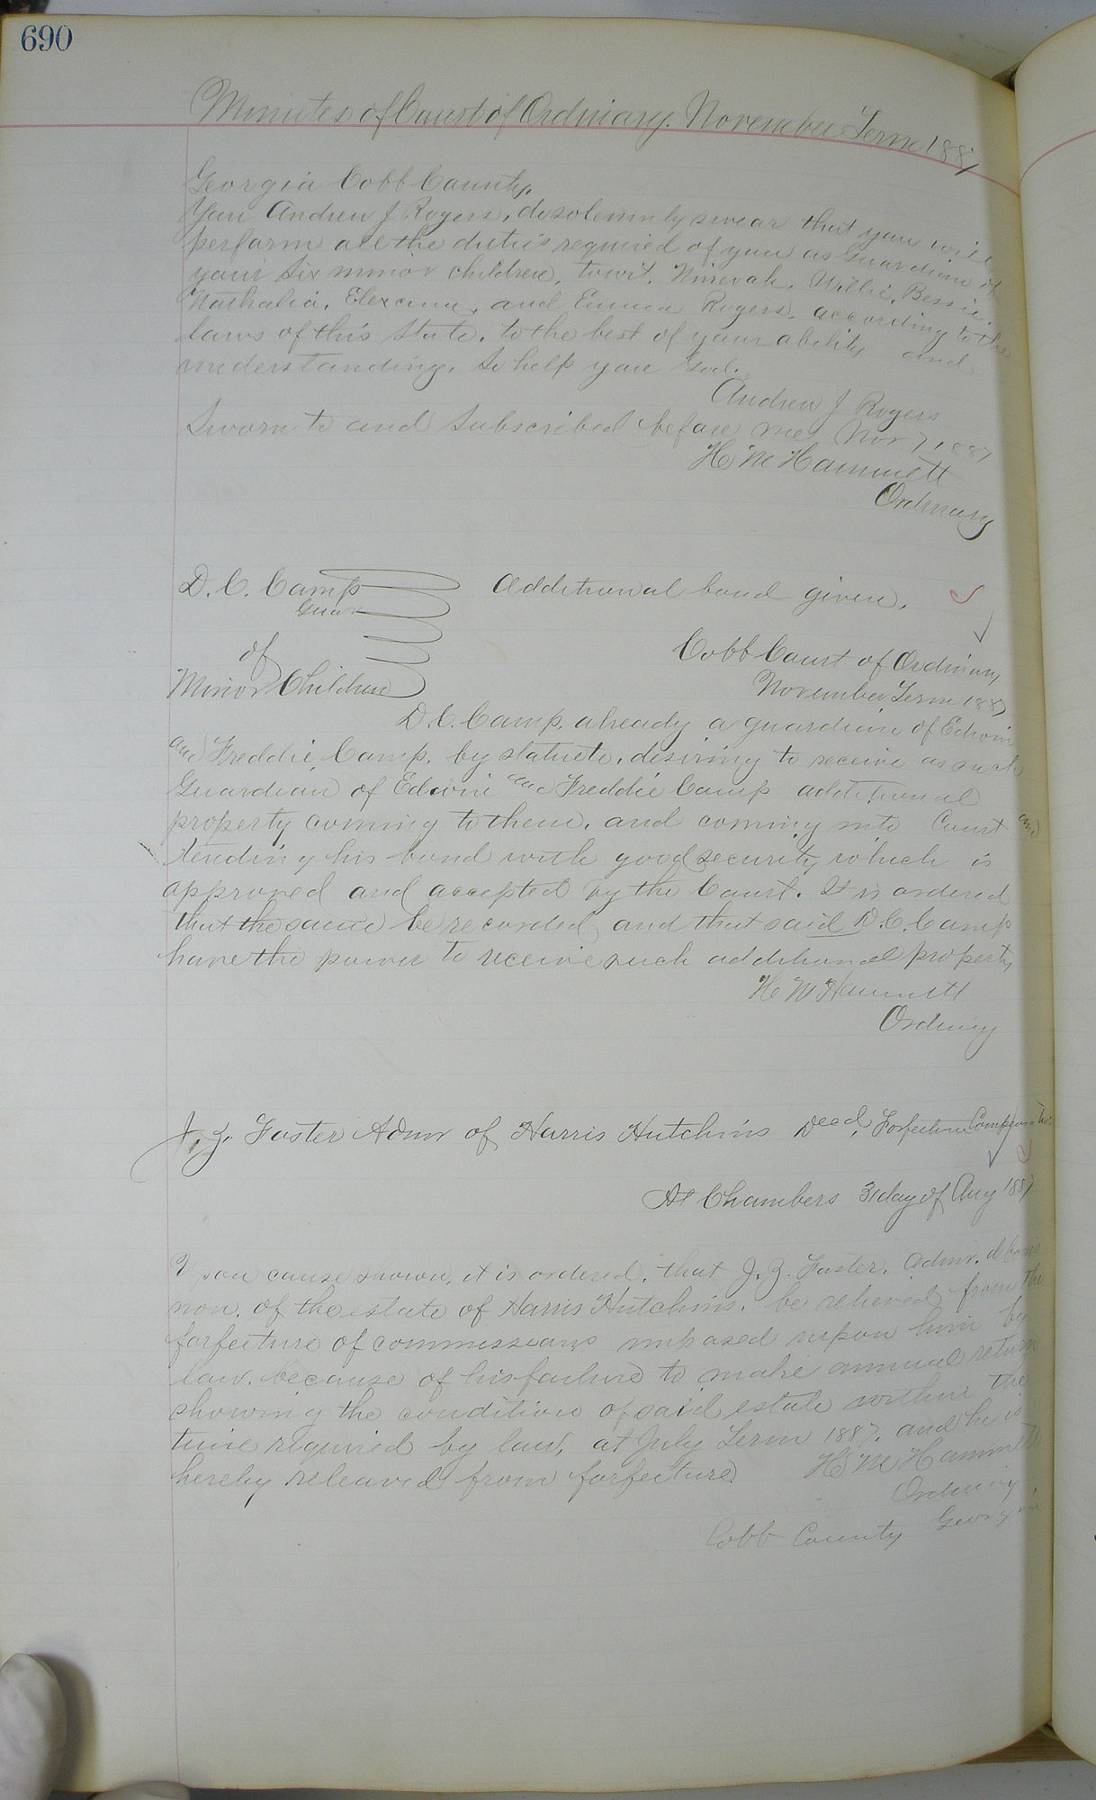 690
Minutes of Court of Ordinary. November Term 1887
Georgia Cobb County,
You Andrew J Rogers, do solemnly swear that you will
perform all the duties required of you as Guardian of
your six minor children, towit, Willie, Bessie,
Nathalia, and Emma Rogers, according to the
laws of this State, to the best of your ability and
understanding, So help you God.
Andrew J Rogers
Sworn to and Subscribed before me, Nov 7, 1887
H M Hammett
Ordinary
D. C. Camp Additional bond given.
Guar
of
Cobb Court of Ordinary
Minor Children
November Term 1887
D. C. Camp, already a guardian of Edwin
and Freddie Camp, by statute, desiring to receive as such
Guardian of Edwin and Freddie Camp additional
property coming to them, and coming into Court and
tending his bond with good security which is
approved and accepted by the Court. It is ordered
that the same be recorded and that said D. C. Camp
have the power to receive such additional property
H M Hammett
Ordinary
J. Z. Foster Admr of Harris Hutchins Decd, Forfeiture
At Chambers 31 day of Aug 1887
Upon cause shown, it is ordered, that J. Z. Foster, Admr. de bonis
non, of the estate of Harris Hutchins, be relieved from the
forfeiture of commissions imposed upon him by
law, because of his failure to make annual return
showing the condition of said estate within the
time required by law, at July Term 1887, and he is
hereby releaved from forfeiture
H M Hammett
Ordinary
Cobb County Georgia